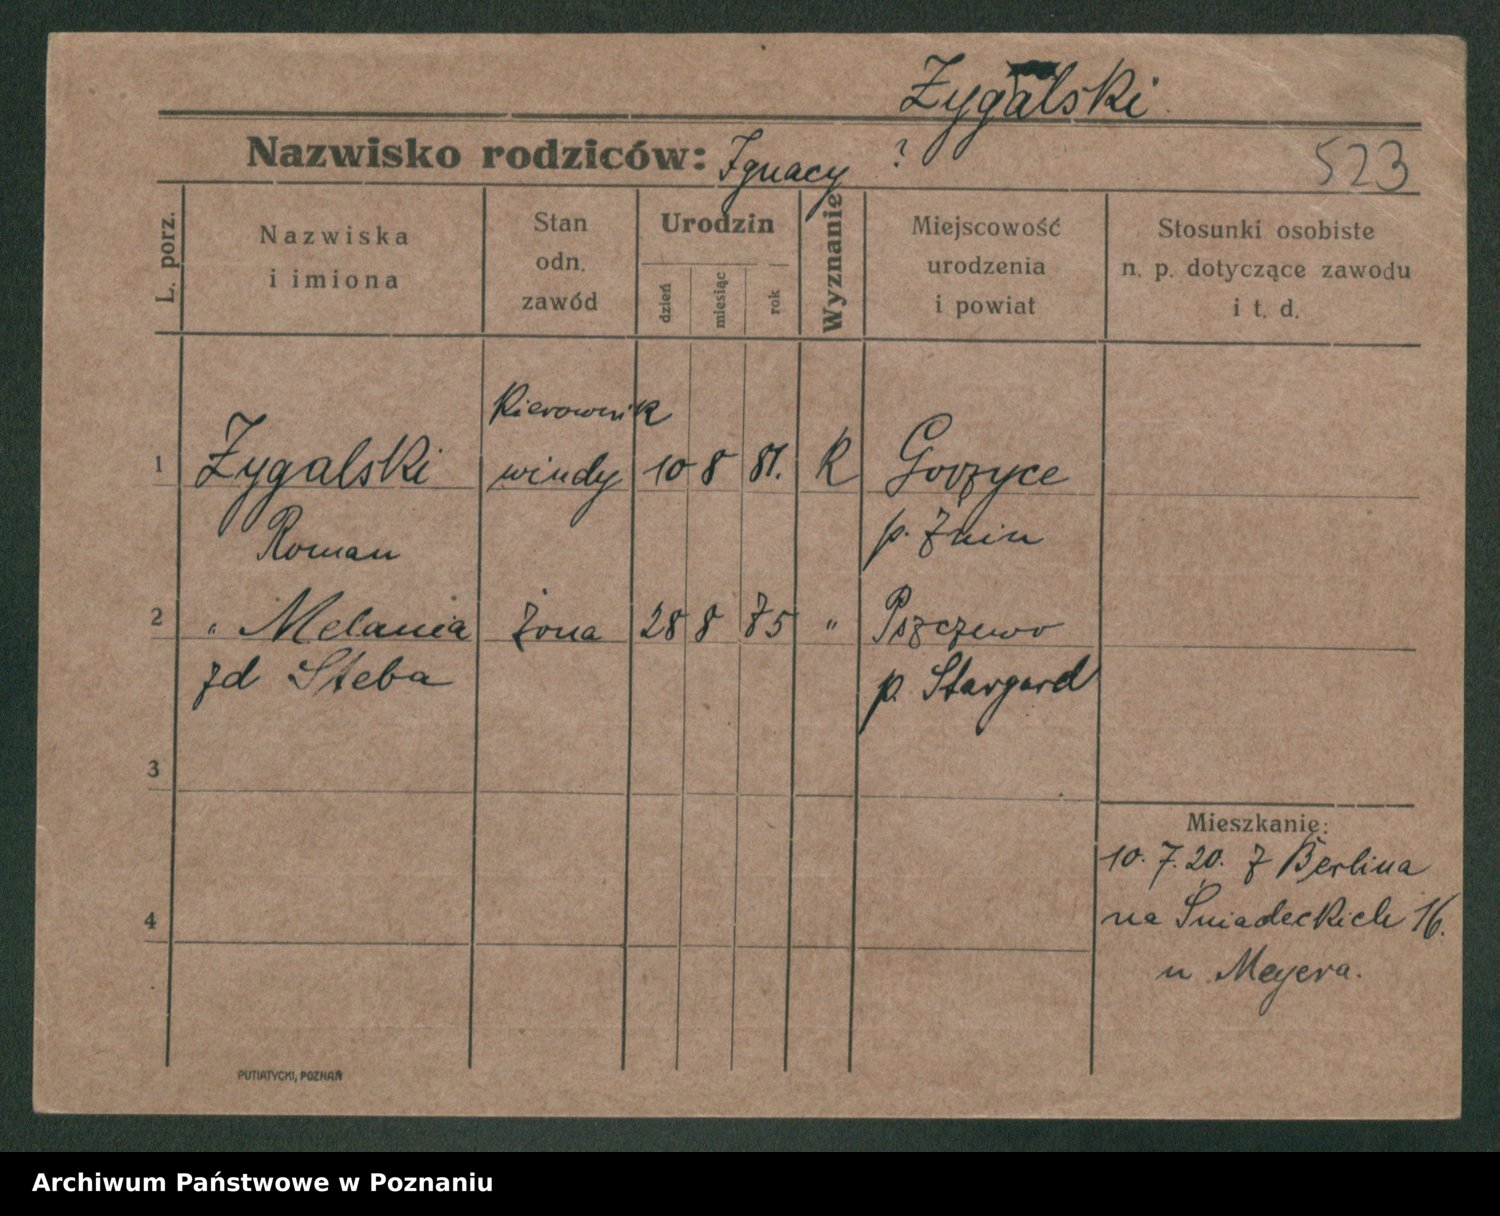 Zygalski
Nazwisko rodziców: Ignacy ? 523
L. porz.
Nazwiska
i imiona
Stan
odn.
zawód
Urodzin
dzień
miesiąc
rok
Wyznanie
Miejscowość
urodzenia
i powiat
Stosunki osobiste
n. p. dotyczące zawodu
i t. d.
Kierownik
1 Zygalski windy 10 8 81. K Gorzyce
Roman p. Żnin
2 " Melania żona 28 8 75 " Pszczewo
zd Steba p. Stargard
3
4
Mieszkanie:
10.7.20. z Berlina
na Śniadeckich 16.
u Meyera.
PUTIATYCKI, POZNAŃ
Archiwum Państwowe w Poznaniu